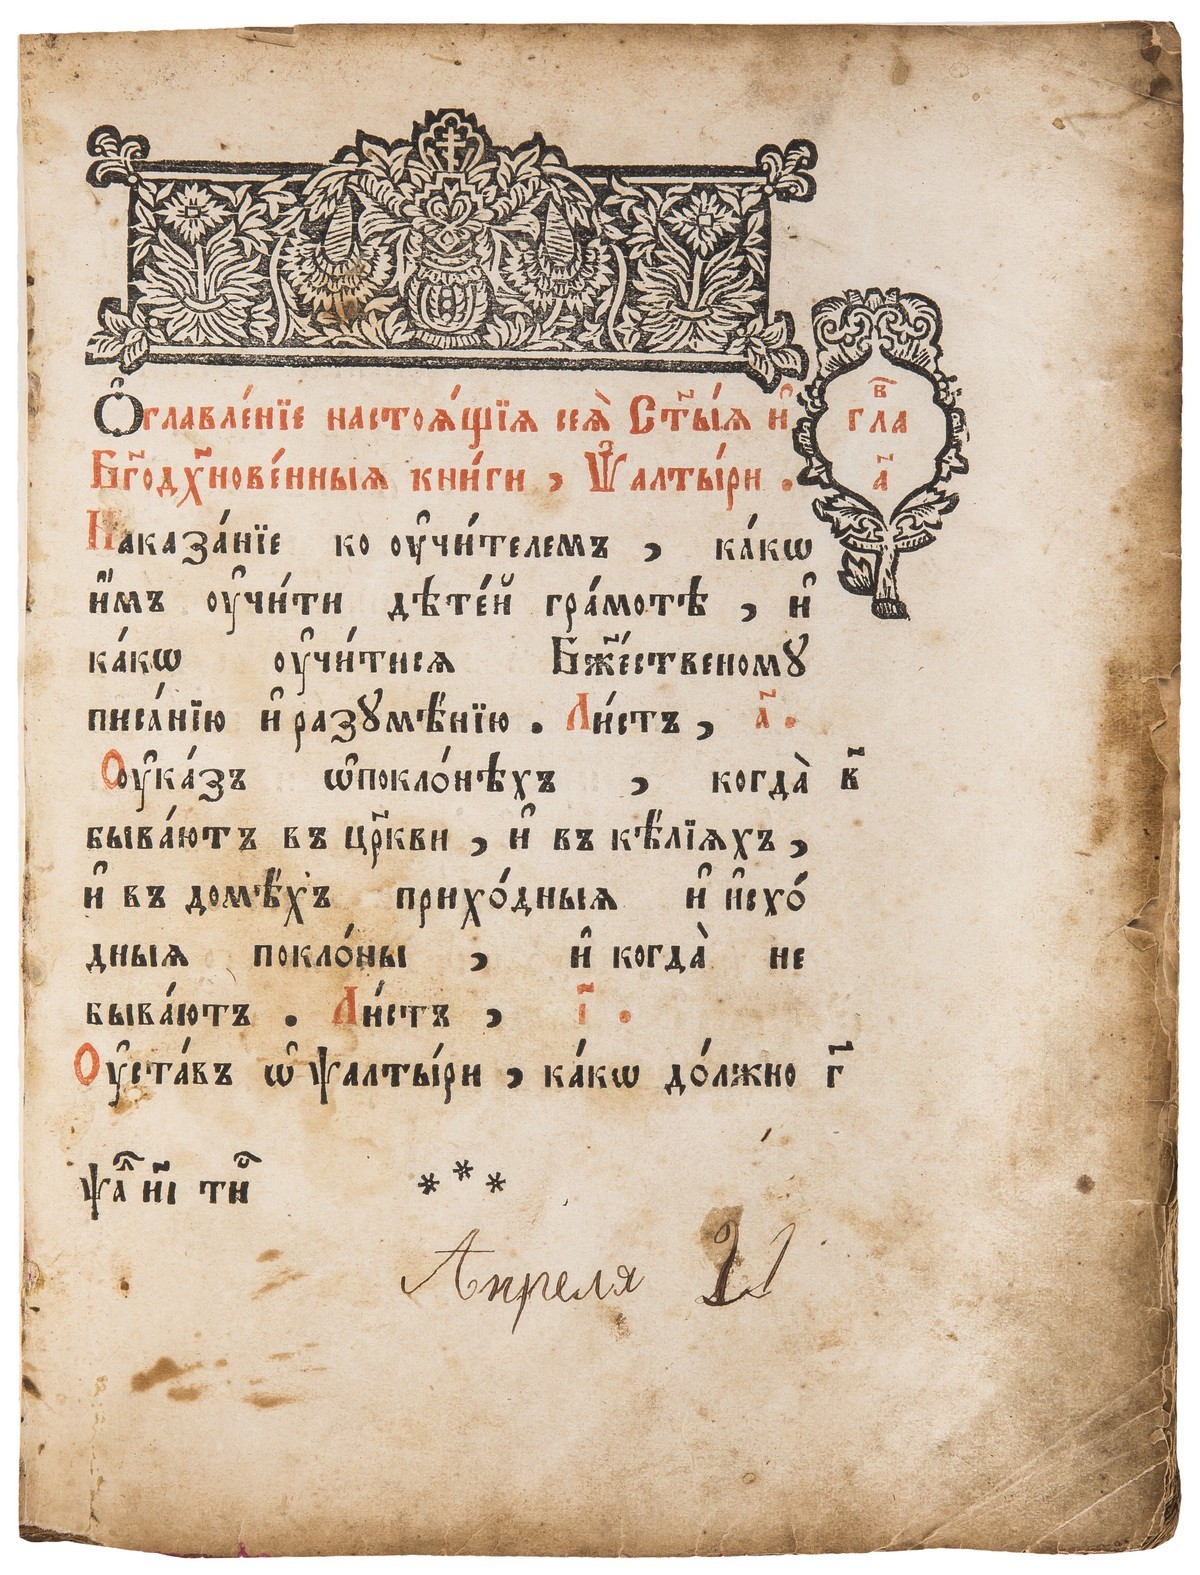 Ѻ҆главле́нїе настоѧ́щїѧ сеѧ̀ Ст҃ы́ѧ и҆
Бг҃одх҃нове́нныѧ кни́ги , Ѱалты́ри .
в҃
гла
а҃
Наказа́нїе ко оу҆чи́телемъ , ка́кѡ
и҆̀мъ оу҆чи́ти дѣте́й гра́мотѣ , и҆
ка́кѡ оу҆чи́тисѧ Бж҃е́ственому
писа́нїю и҆ разꙋмѣ́нїю . Ли́стъ , а҃ .
Оу҆ка́зъ ѡ҆покло́нѣхъ , когда̀ в҃
быва́ютъ въ цр҃кви , и҆ въ кѣ́лїѧхъ ,
и҆ въ домѣ́хъ прихо́дныѧ и҆ и҆схо́
дныѧ покло́ны , и҆ когда̀ не
быва́ютъ . Ли́стъ , і҃ .
Оу҆ста́въ ѡ҆ ѱалты́ри , ка́кѡ до́лжно г҃
* * *
Апреля 21